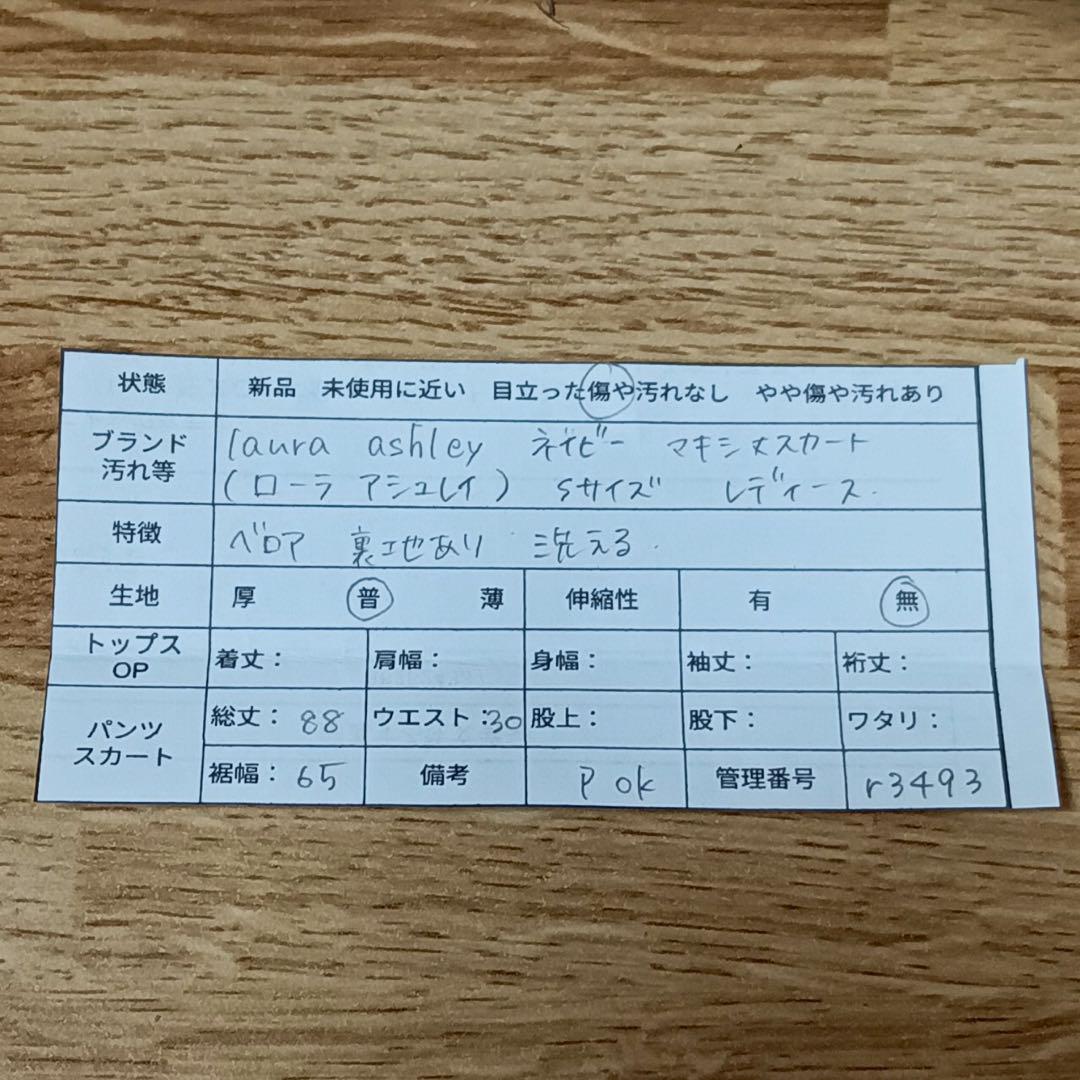 状態 新品 未使用に近い 目立った傷や汚れなし やや傷や汚れあり
ブランド 汚れ等 laura ashley ネイビー マキシ丈スカート
(ローラ アシュレイ) Sサイズ レディース.
特徴 ベロア 裏地あり 洗える.
生地 厚 普 薄 伸縮性 有 無
トップス OP 着丈: 肩幅: 身幅: 袖丈: 裄丈:
パンツ スカート 総丈: 88 ウエスト:30 股上: 股下: ワタリ:
裾幅: 65 備考 P ok 管理番号 r3493